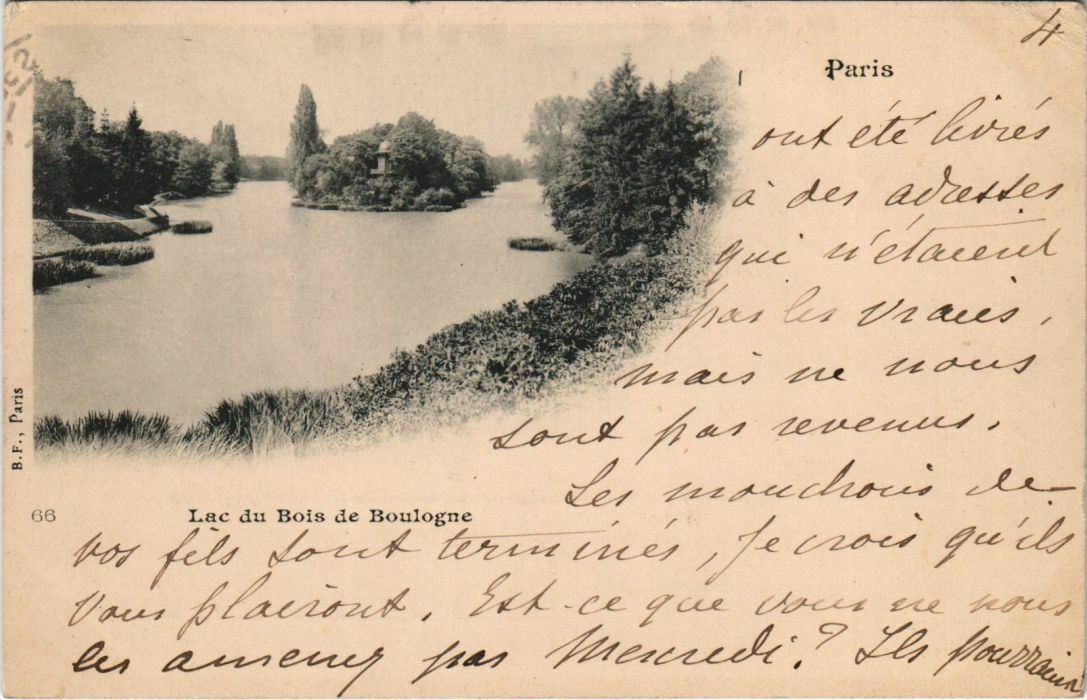 4
Paris
ont été livrés
à des adresses
qui n'étaient
pas les vraies,
mais ne nous
sont pas revenus.
Les mouchoirs de
B. F., Paris
66
Lac du Bois de Boulogne
vos fils sont terminés, je crois qu'ils
vous plairont. Est-ce que vous ne nous
les amenez pas Mercredi? Ils pourraient